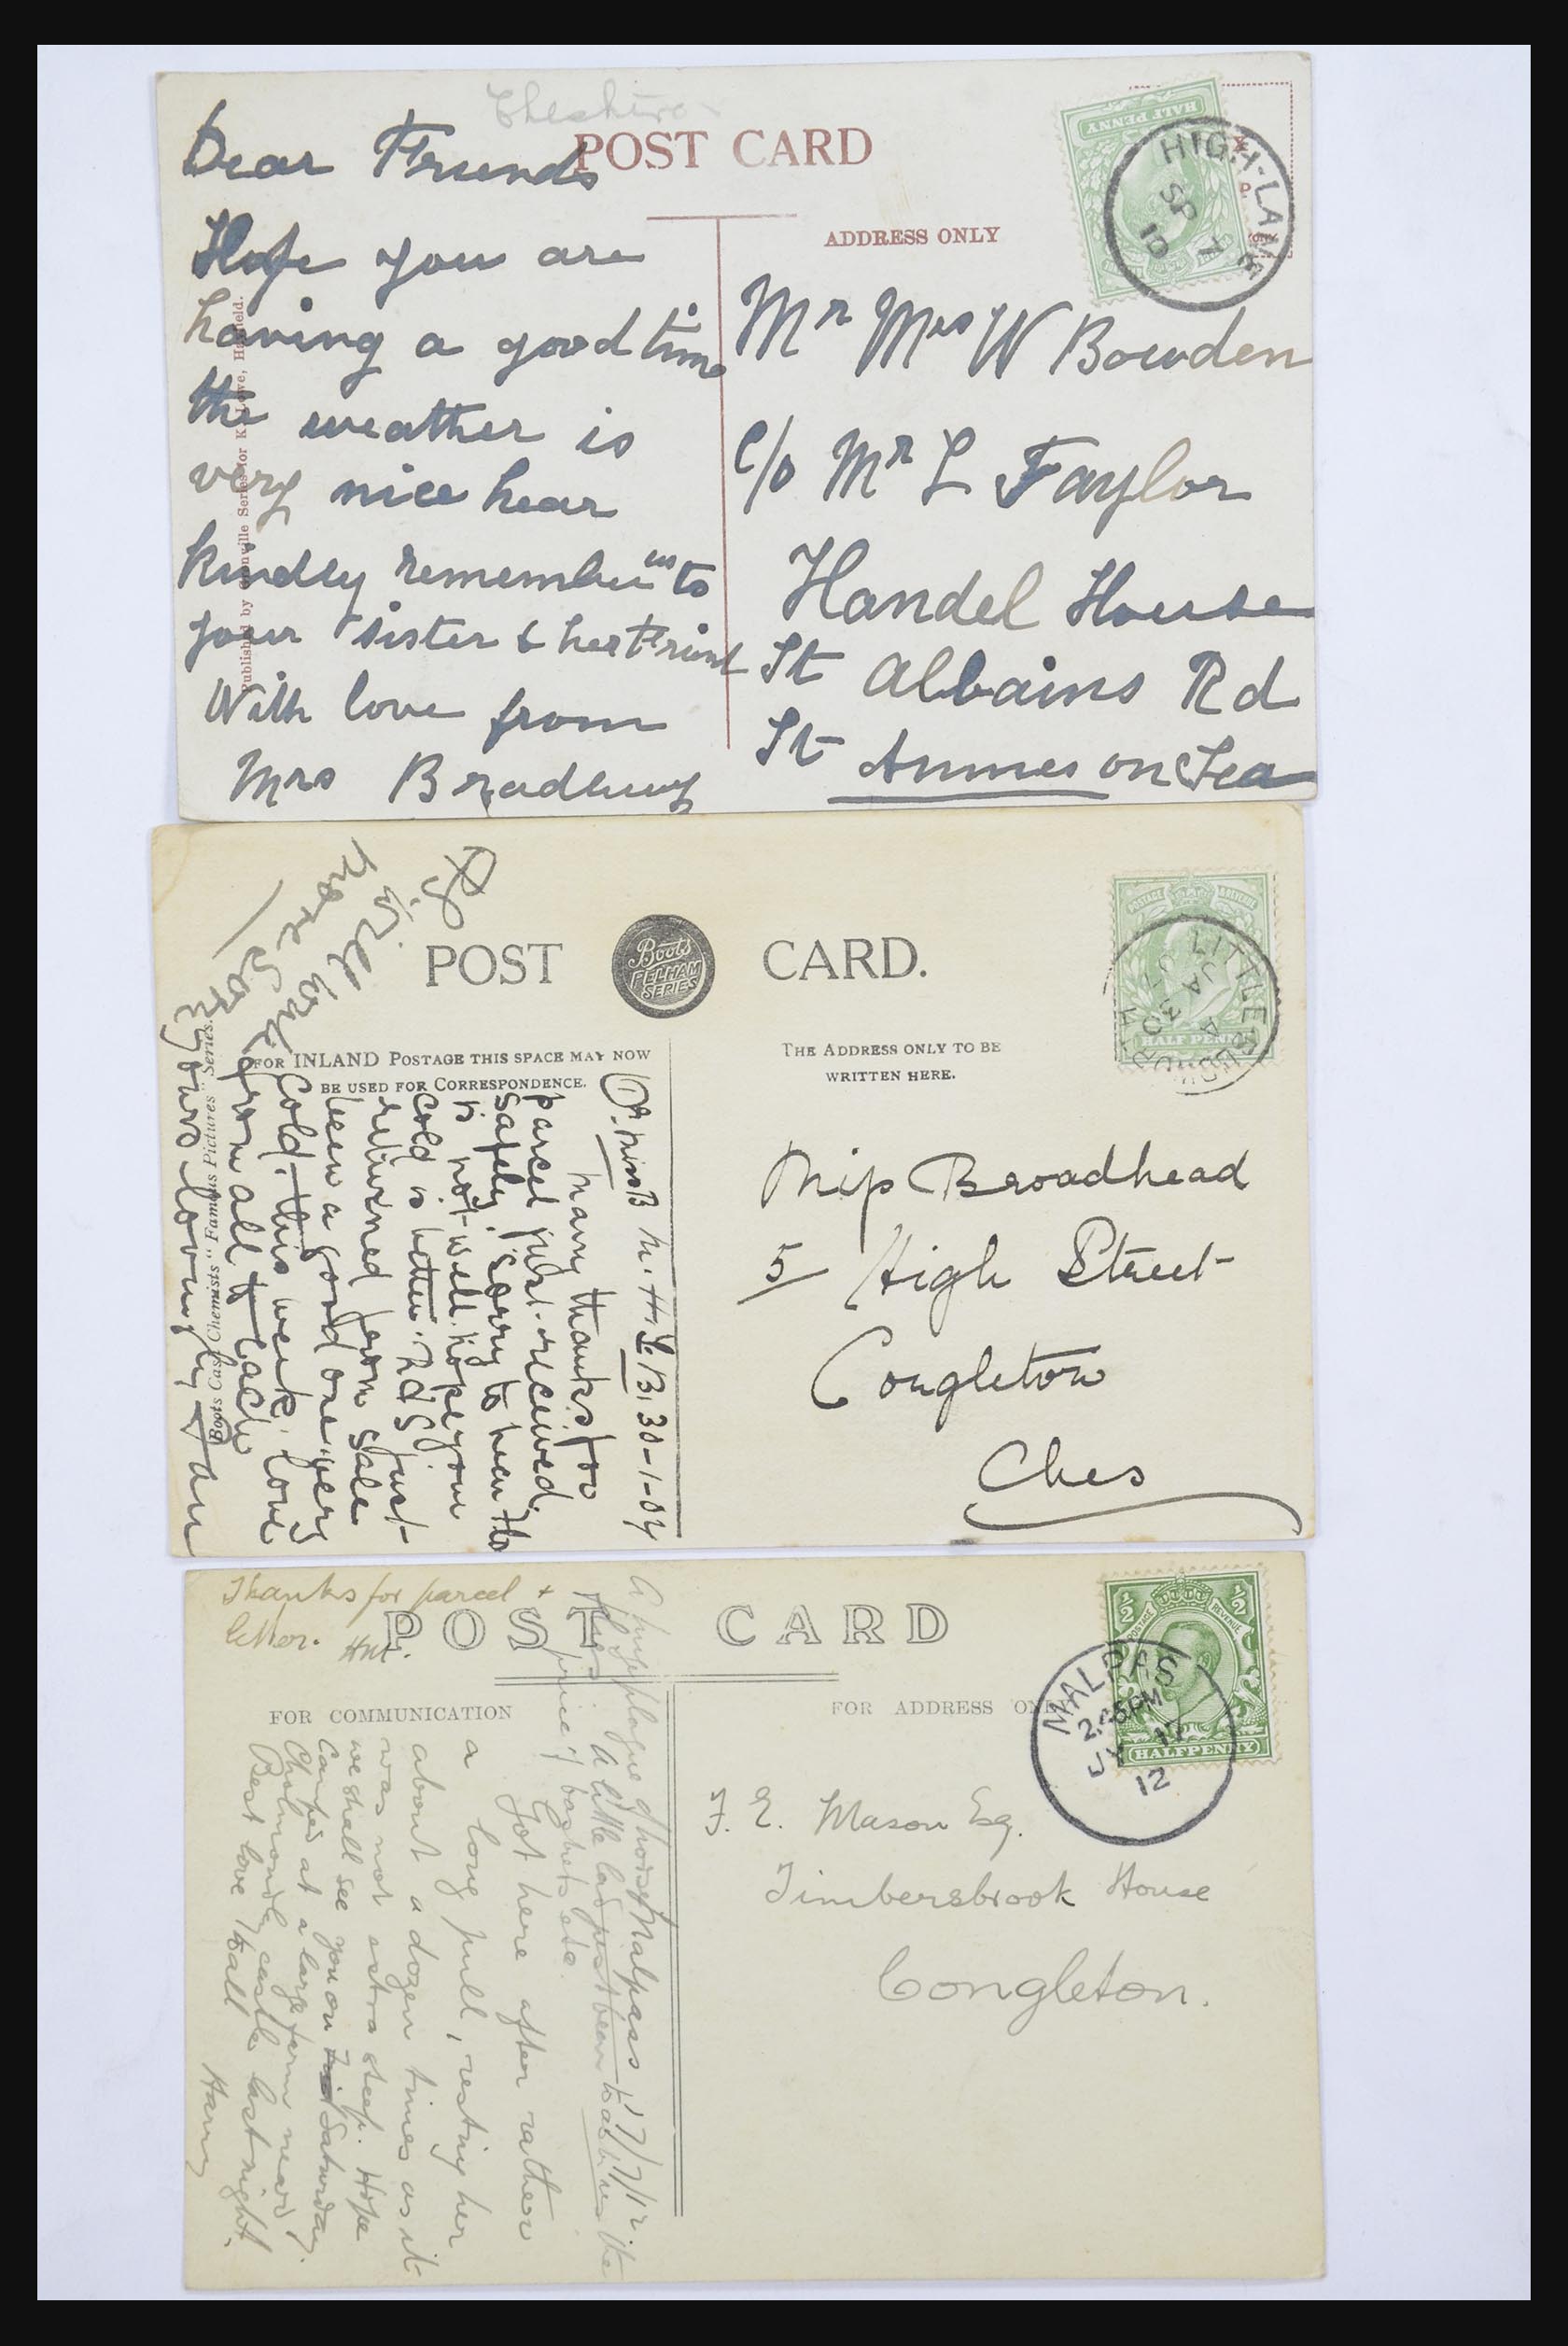 Cheshire
POST CARD
Dear Friends
Hope you are
having a good time
the weather is
very nice hear
kindly remember us to
your sister & her Friend
With love from
Mrs
Published by Grenville Series for K. Lowe,
ADDRESS ONLY
HALF PENNY
HIGH-LANE
SP 7
10
Mr Mrs W Bowden
C/o Mr L Taylor
Handel House
St Albains Rd
St Annes on Sea
POST CARD.
Boots
PELHAM
SERIES
FOR INLAND POSTAGE THIS SPACE MAY NOW
BE USED FOR CORRESPONDENCE.
THE ADDRESS ONLY TO BE
WRITTEN HERE.
POSTAGE REVENUE
HALF PENNY
LITTLE
JA 30
Boots Cash Chemists "Famous Pictures" Series.
will
30-1-
Many thanks for
parcel just received
safely. Sorry to hear
is not well. hope your
cold is better. just
returned from Sale
been a good one. very
Cold this week. love
from all to each
yours lovingly
Miss Broadhead
5/ High Street
Congleton
Ches
POST CARD
Thanks for parcel +
letter.
FOR COMMUNICATION
FOR ADDRESS ONLY
½ POSTAGE REVENUE ½
HALFPENNY
MALPAS
JY 17
12
Malpas 17/7/12.
A huge plague of
A little lad just been to ask us the
price of baskets etc.
Got here after rather
a long pull, resting her
about a dozen times as it
was not extra steep. Hope
we shall see you on Saturday.
Camped at a large farm near
Cholmondely castle last night.
Best love to all
Harry
F. E. Mason Esq.
Timbersbrook House
Congleton.